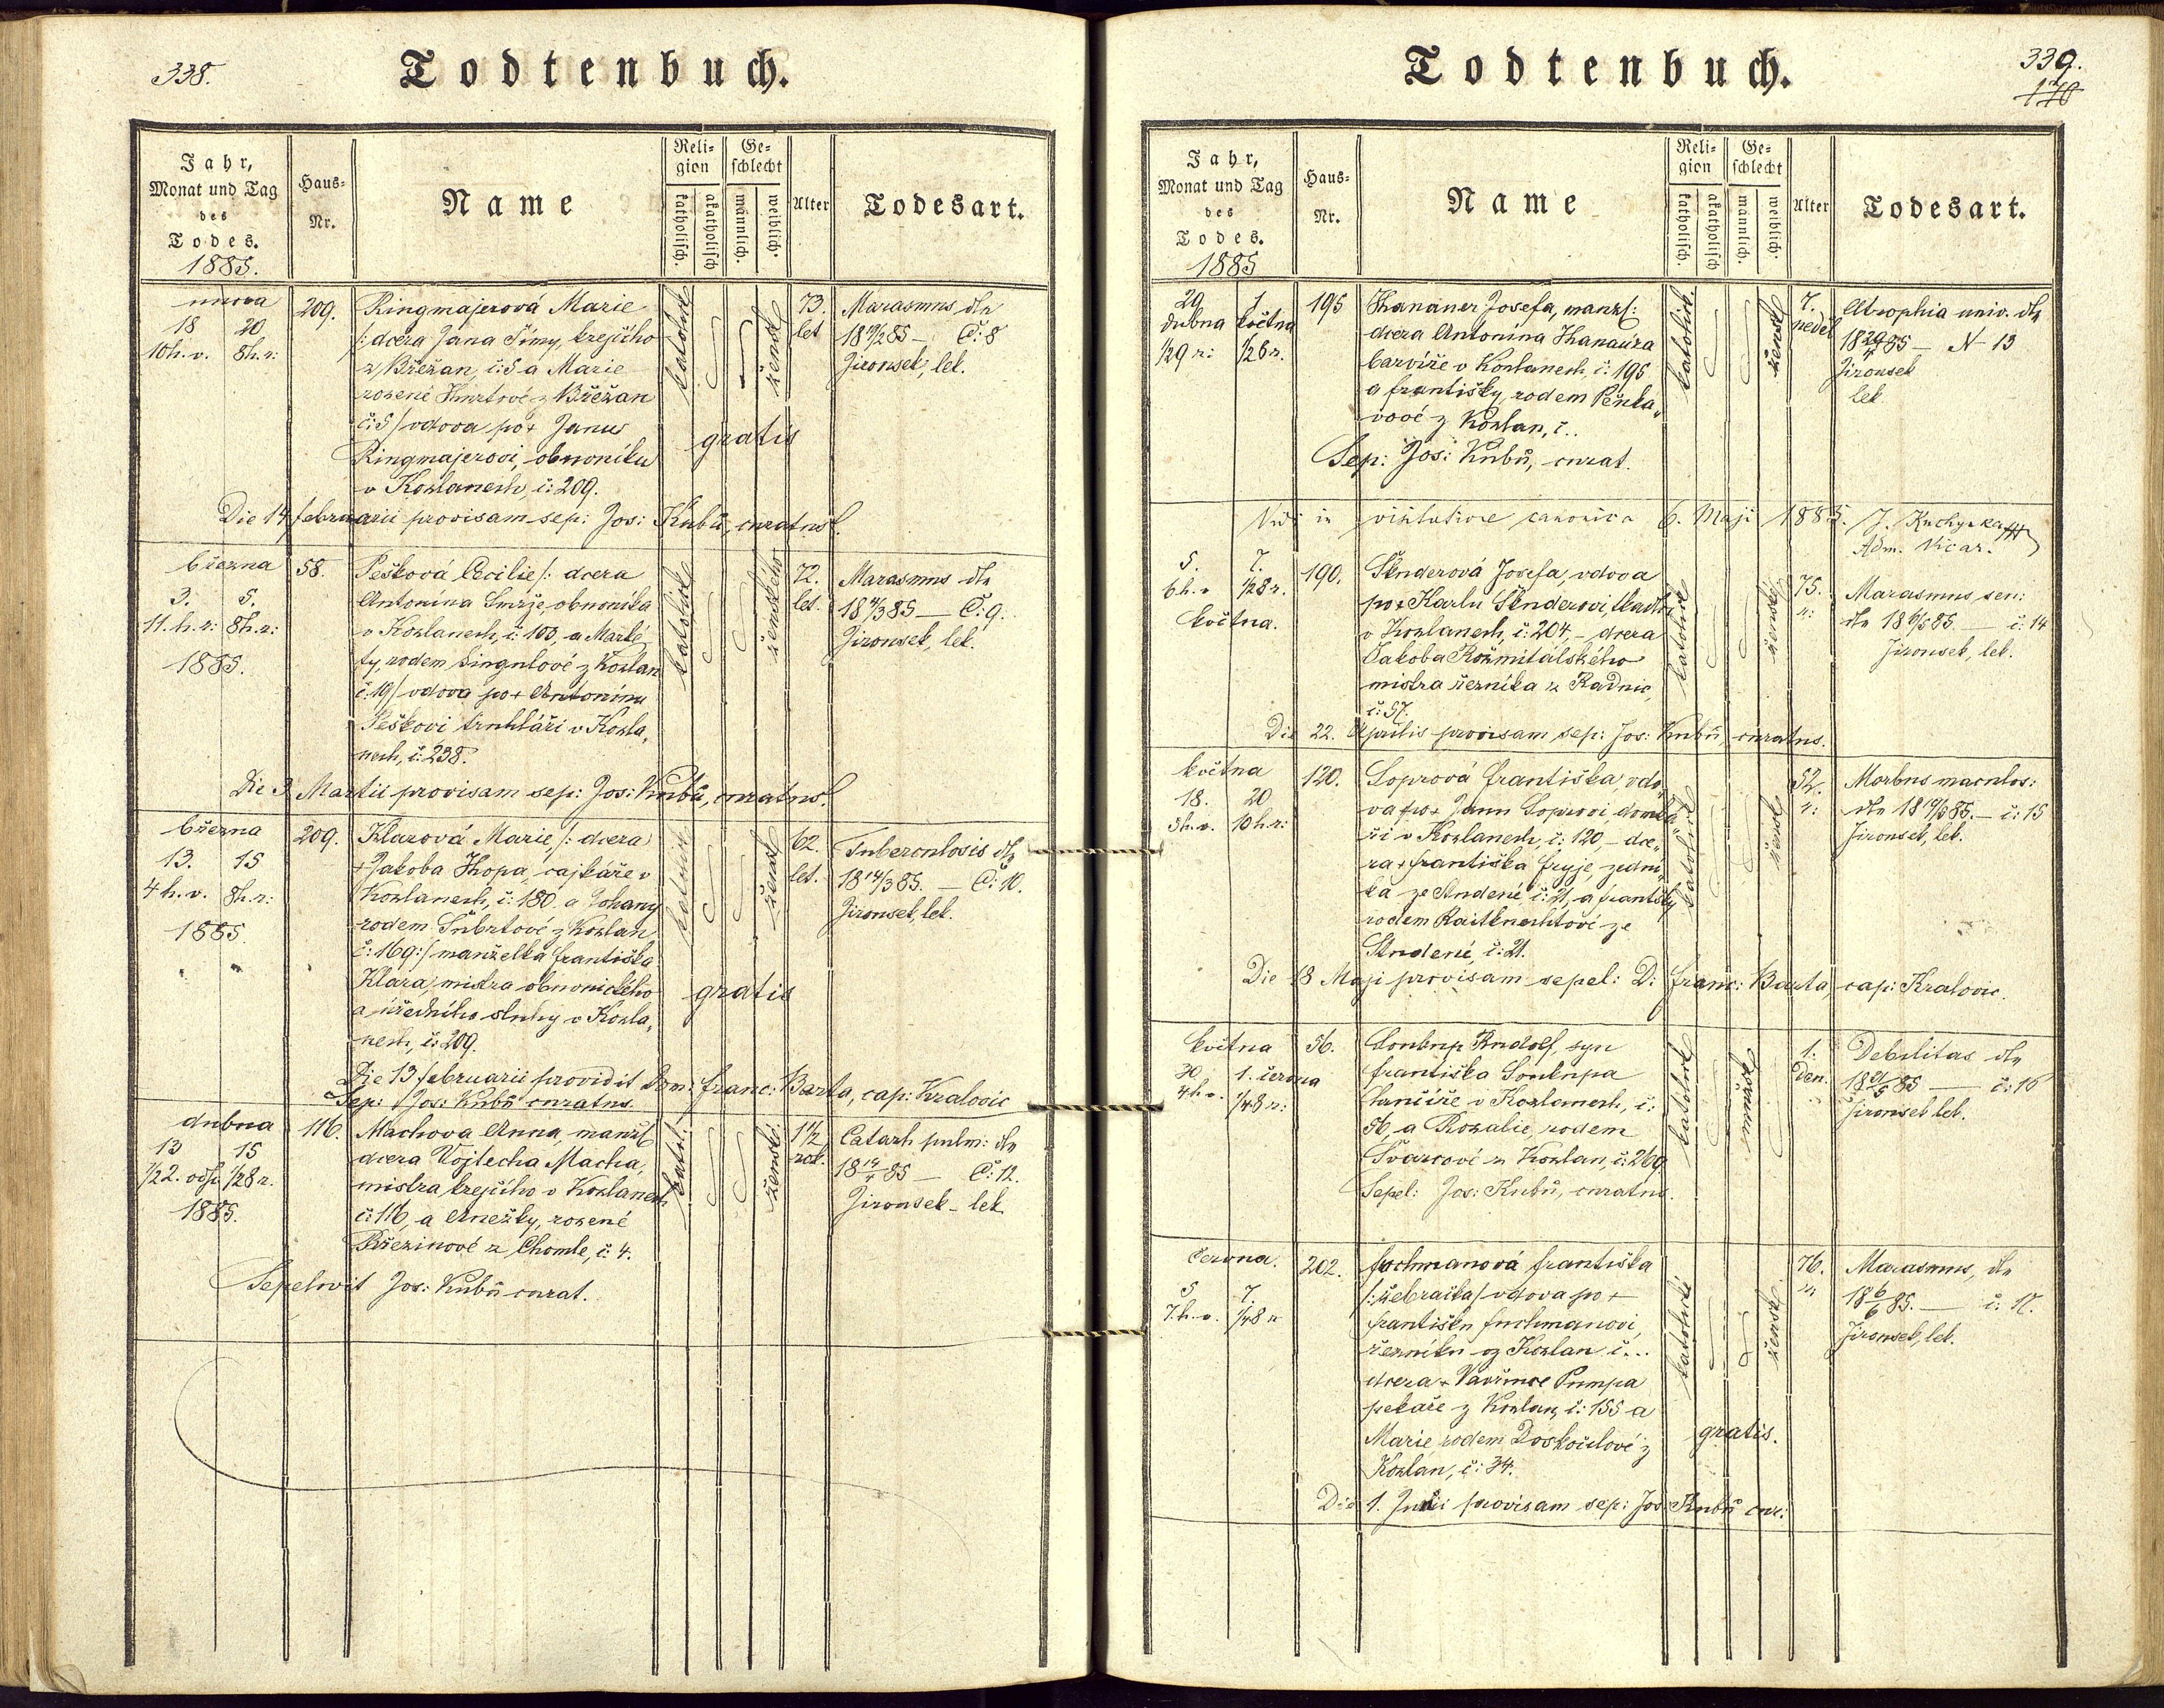 338.
Todtenbuch.
Jahr,
Monat und Tag
des
Todes.
1885.
Haus-
Nr.
Name
Reli-
gion
katholisch.
akatholisch
Ge-
schlecht
männlich.
weiblich.
Alter
Todesart.
unora
18 20
10h. v. 8h. r:
209.
Ringmajerová Marie
/: dcera Jana Šímy, krejčího
z Břežan, č: 5 a Marie
rozené z Břežan
č: 5/ vdova po + Janu
Ringmajerovi, obuvníku
v Kozlanech, č: 209.
katolické
ženské
gratis
73.
let
Marasmus dle
18 19/2 85 – Č: 8
Jirousek, lek.
Die 14 februarii provisam sep: Jos: Kubů, curatus.
března
3. 5.
11. h. r: 8h. r:
1885.
58.
Pešková Cecilie /: dcera
Antonína Smrže, obuvníka
v Kozlanech, č: 103, a Marké-
ty rodem Singulové z Kozlan
č: 19/ vdova po + Antonínu
Peškovi truhláři v Kozla-
nech, č: 238.
katolické
ženského
72.
let.
Marasmus dle
18 4/3 85 — Č: 9.
Jirousek, lek.
Die 3 Martii provisam sep: Jos: Kubů, curatus.
března
13. 15
4h. v. 8h. r:
1885.
209.
Klarová Marie, /: dcera
+ Jakoba Thopa, cajkáře v
Kozlanech, č: 180. a Johany
rodem Šubrtové z Kozlan
č: 169:/ manželka Františka
Klara, mistra obuvnického
a úředního sluhy v Kozla-
nech, č: 209.
katolické
ženské
gratis
62.
let.
Tuberculosis dle
18 14/3 85. — Č: 10.
Jirousek, lek.
Die 13 februarii providit Dom: Franc: Barta, cap: Kralovic
Sep: Jos: Kubů curatus.
dubna
13 15
1/2 2. odp. 1/2 8 r.
1885.
116.
Machova Anna, manžel.
dcera Vojtecha Macha,
mistra krejčího v Kozlanech
č: 116, a Anežky, rozené
Březinové z Chomle, č: 4.
katol:
ženské.
1 1/2
rok.
Catarh pulm: dle
18 14/4 85 — Č: 12.
Jirousek – lek.
Sepelivit Jos: Kubů curat.
339.
170
Todtenbuch.
Jahr,
Monat und Tag
des
Todes.
1885
Haus-
Nr.
Name
Reli-
gion
katholisch.
akatholisch
Ge-
schlecht
männlich.
weiblich.
Alter
Todesart.
29 1
dubna května
1/2 9 r: 1/2 6 r.
195
Thananer Josefa, manžel:
dcera Antonína Thanaura
barvíře v Kozlanech, č: 195
a Františky, rodem Pěnka-
vové z Kozlan, č..
katolick.
ženské
7.
neděl
Atrophia univ. dle
18 29/4 85 — N 13
Jirousek
lek
Sep: Jos: Kubů, curat.
Vidi in visitatione canonica 6. Maji 1885. J. Kuchynka
Adm. Vicar.
5. 7.
6h. v 1/2 8 r.
května.
190.
Šenderová Josefa, vdova
po + Karlu Šenderovi, tkadlci
v Kozlanech, č: 204, – dcera
Jakoba Rožmitálského
mistra řezníka z Radnic,
č: 57.
katolické
ženské
75.
r:
Marasmus sen:
dle 18 6/5 85 — č: 14
Jirousek, lek.
Die 22. Aprilis provisam sep: Jos: Kubů, curatus.
května
18. 20
5h. v. 10h. r:
120.
Soprová Františka, vdo-
va po + Janu Soprovi, domká-
ři v Kozlanech, č: 120, – dce-
ra + Františka Fryje, zední-
ka ze Studené č: 21, a Františky
rodem Raitknechtové ze
Studené, č: 21.
katolické
ženské
52.
r:
Morbus maculos:
dle 18 19/5 85. — č: 15
Jirousek, lek.
Die 18 Maji provisam sepel: D: Franc: Barta, cap: Kralovic.
května
30 1. června
4h v. 1/4 8 r:
56.
Soukup Rudolf, syn
Františka Soukupa
v Kozlanech, č:
56, a Rozalie, rodem
Švarcové z Kozlan, č: 269
katolické
mužské
1.
den.
Debilitas dle
18 31/5 85 — č: 16
Jirousek lek.
Sepel: Jos: Kubů, curatus.
června.
5 7.
7. h. v. 1/4 8 r
202.
Fuchmanová Františka
/: žebračka/ vdova po +
Františku Fuchmanovi,
řezníku z Kozlan č...
dcera + Vavřince Pumpa
pekaře z Kozlan, č: 155 a
Marie, rodem Doskočilové z
Kozlan, č: 34.
katolické
ženské
gratis.
76.
r.
Marasmus, dle
18 6/6 85. — č: 17.
Jirousek, lek.
Die 1. Junii provisam sep: Jos: Kubů cur: